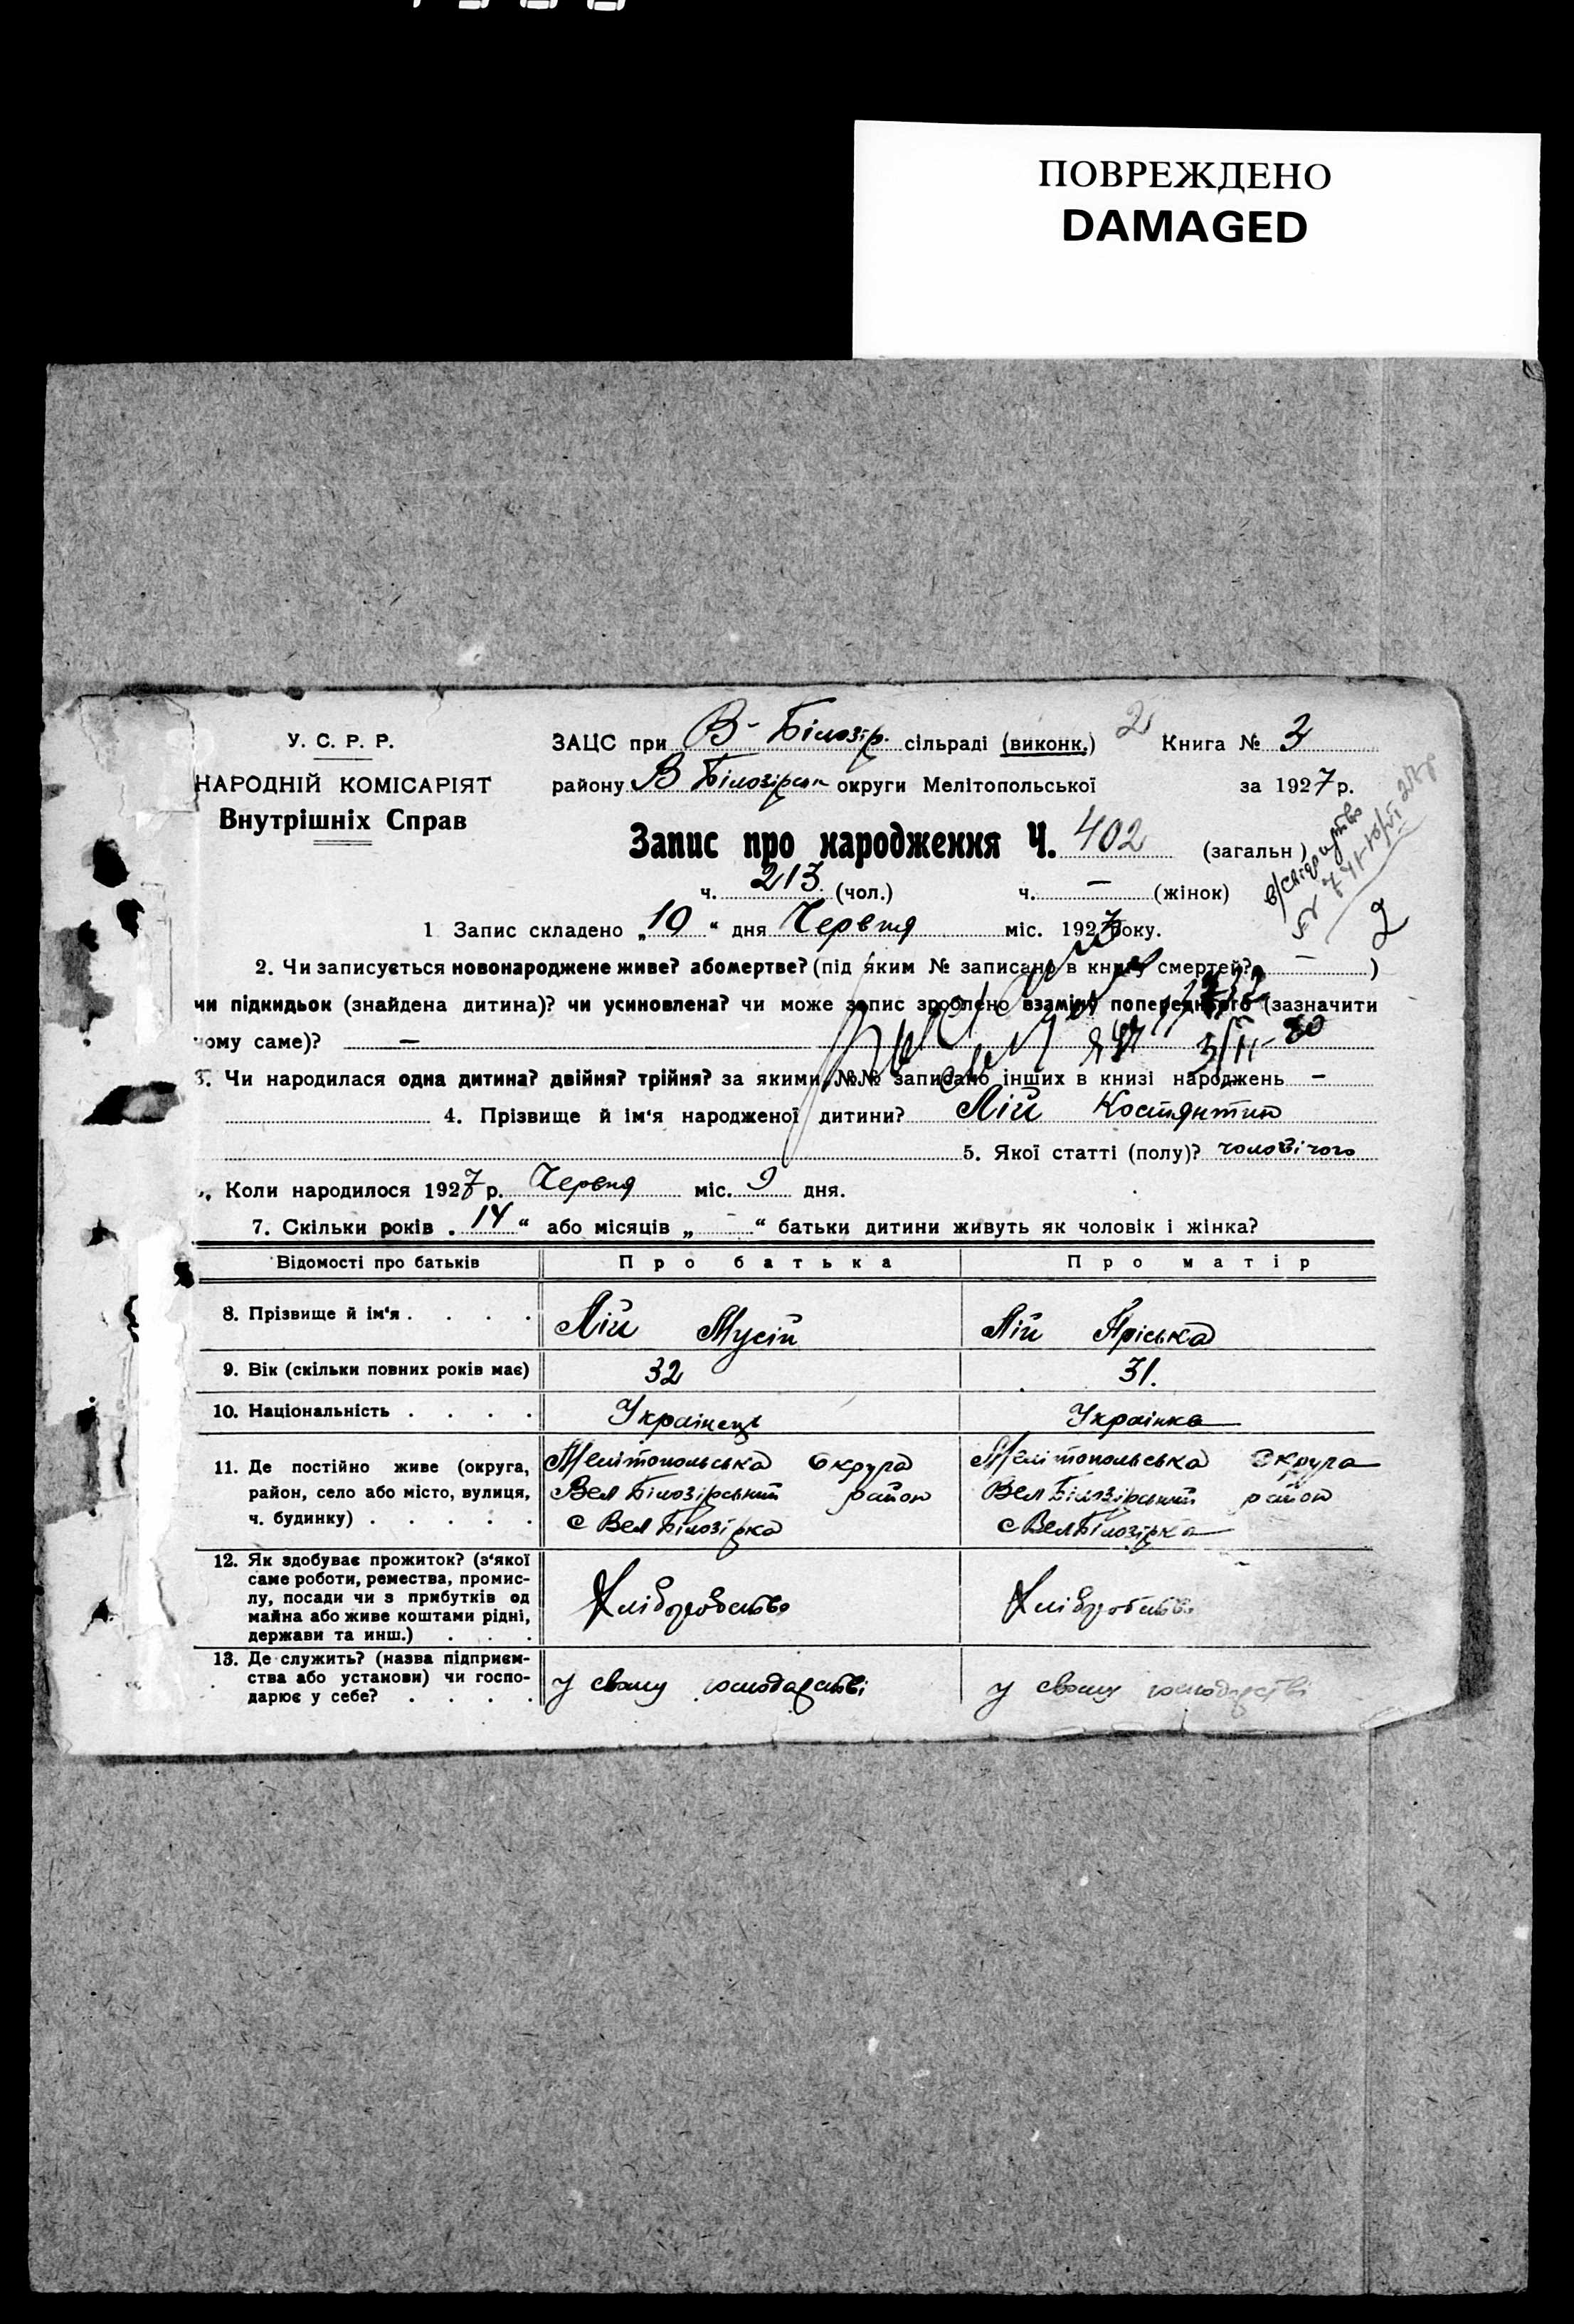 ПОВРЕЖДЕНО
DAMAGED
У. С. Р. Р.
НАРОДНІЙ КОМІСАРІЯТ
Внутрішніх Справ
ЗАЦС при В-Білозір. сільраді (виконк.) 2 Книга № 3
району В Білозірськ округи Мелітопольської за 1927 р.
Запис про народження Ч. 402 (загальн)
ч. 213 (чол.) ч. — (жінок)
1 Запис складено „10“ дня Червня міс. 1927 року.
2
2. Чи записується новонароджене живе? або мертве? (під яким № записано в книгу смертей? — )
чи підкидьок (знайдена дитина)? чи усиновлена? чи може запис зроблено взаміну попереднього (зазначити
чому саме)? —
3. Чи народилася одна дитина? двійня? трійня? за якими №№ записано інших в книзі народжень —
4. Прізвище й ім'я народженої дитини? Лій Костянтин
5. Якої статті (полу)? чоловічого
Коли народилося 1927 р. Червня міс. 9 дня.
7. Скільки років „14“ або місяців „—“ батьки дитини живуть як чоловік і жінка?
Відомості про батьків Про батька Про матір
8. Прізвище й ім'я . . . . Лій Мусій Лій Пріська
9. Вік (скільки повних років має) 32 31.
10. Національність . . . . Українець Українка
11. Де постійно живе (округа, район, село або місто, вулиця, ч. будинку) . . . . .
Мелітопольська округа
Вел Білозірський район
с Вел Білозірка
Мелітопольська округа
Вел Білозірський район
с Вел Білозірка
12. Як здобуває прожиток? (з'якої
саме роботи, ремества, промис-
лу, посади чи з прибутків од
майна або живе коштами рідні,
держави та инш.) . . .
Хліборобство Хліборобство
13. Де служить? (назва підприєм-
ства або установи) чи госпо-
дарює у себе? . . . .
у свому господарстві у свому господарстві